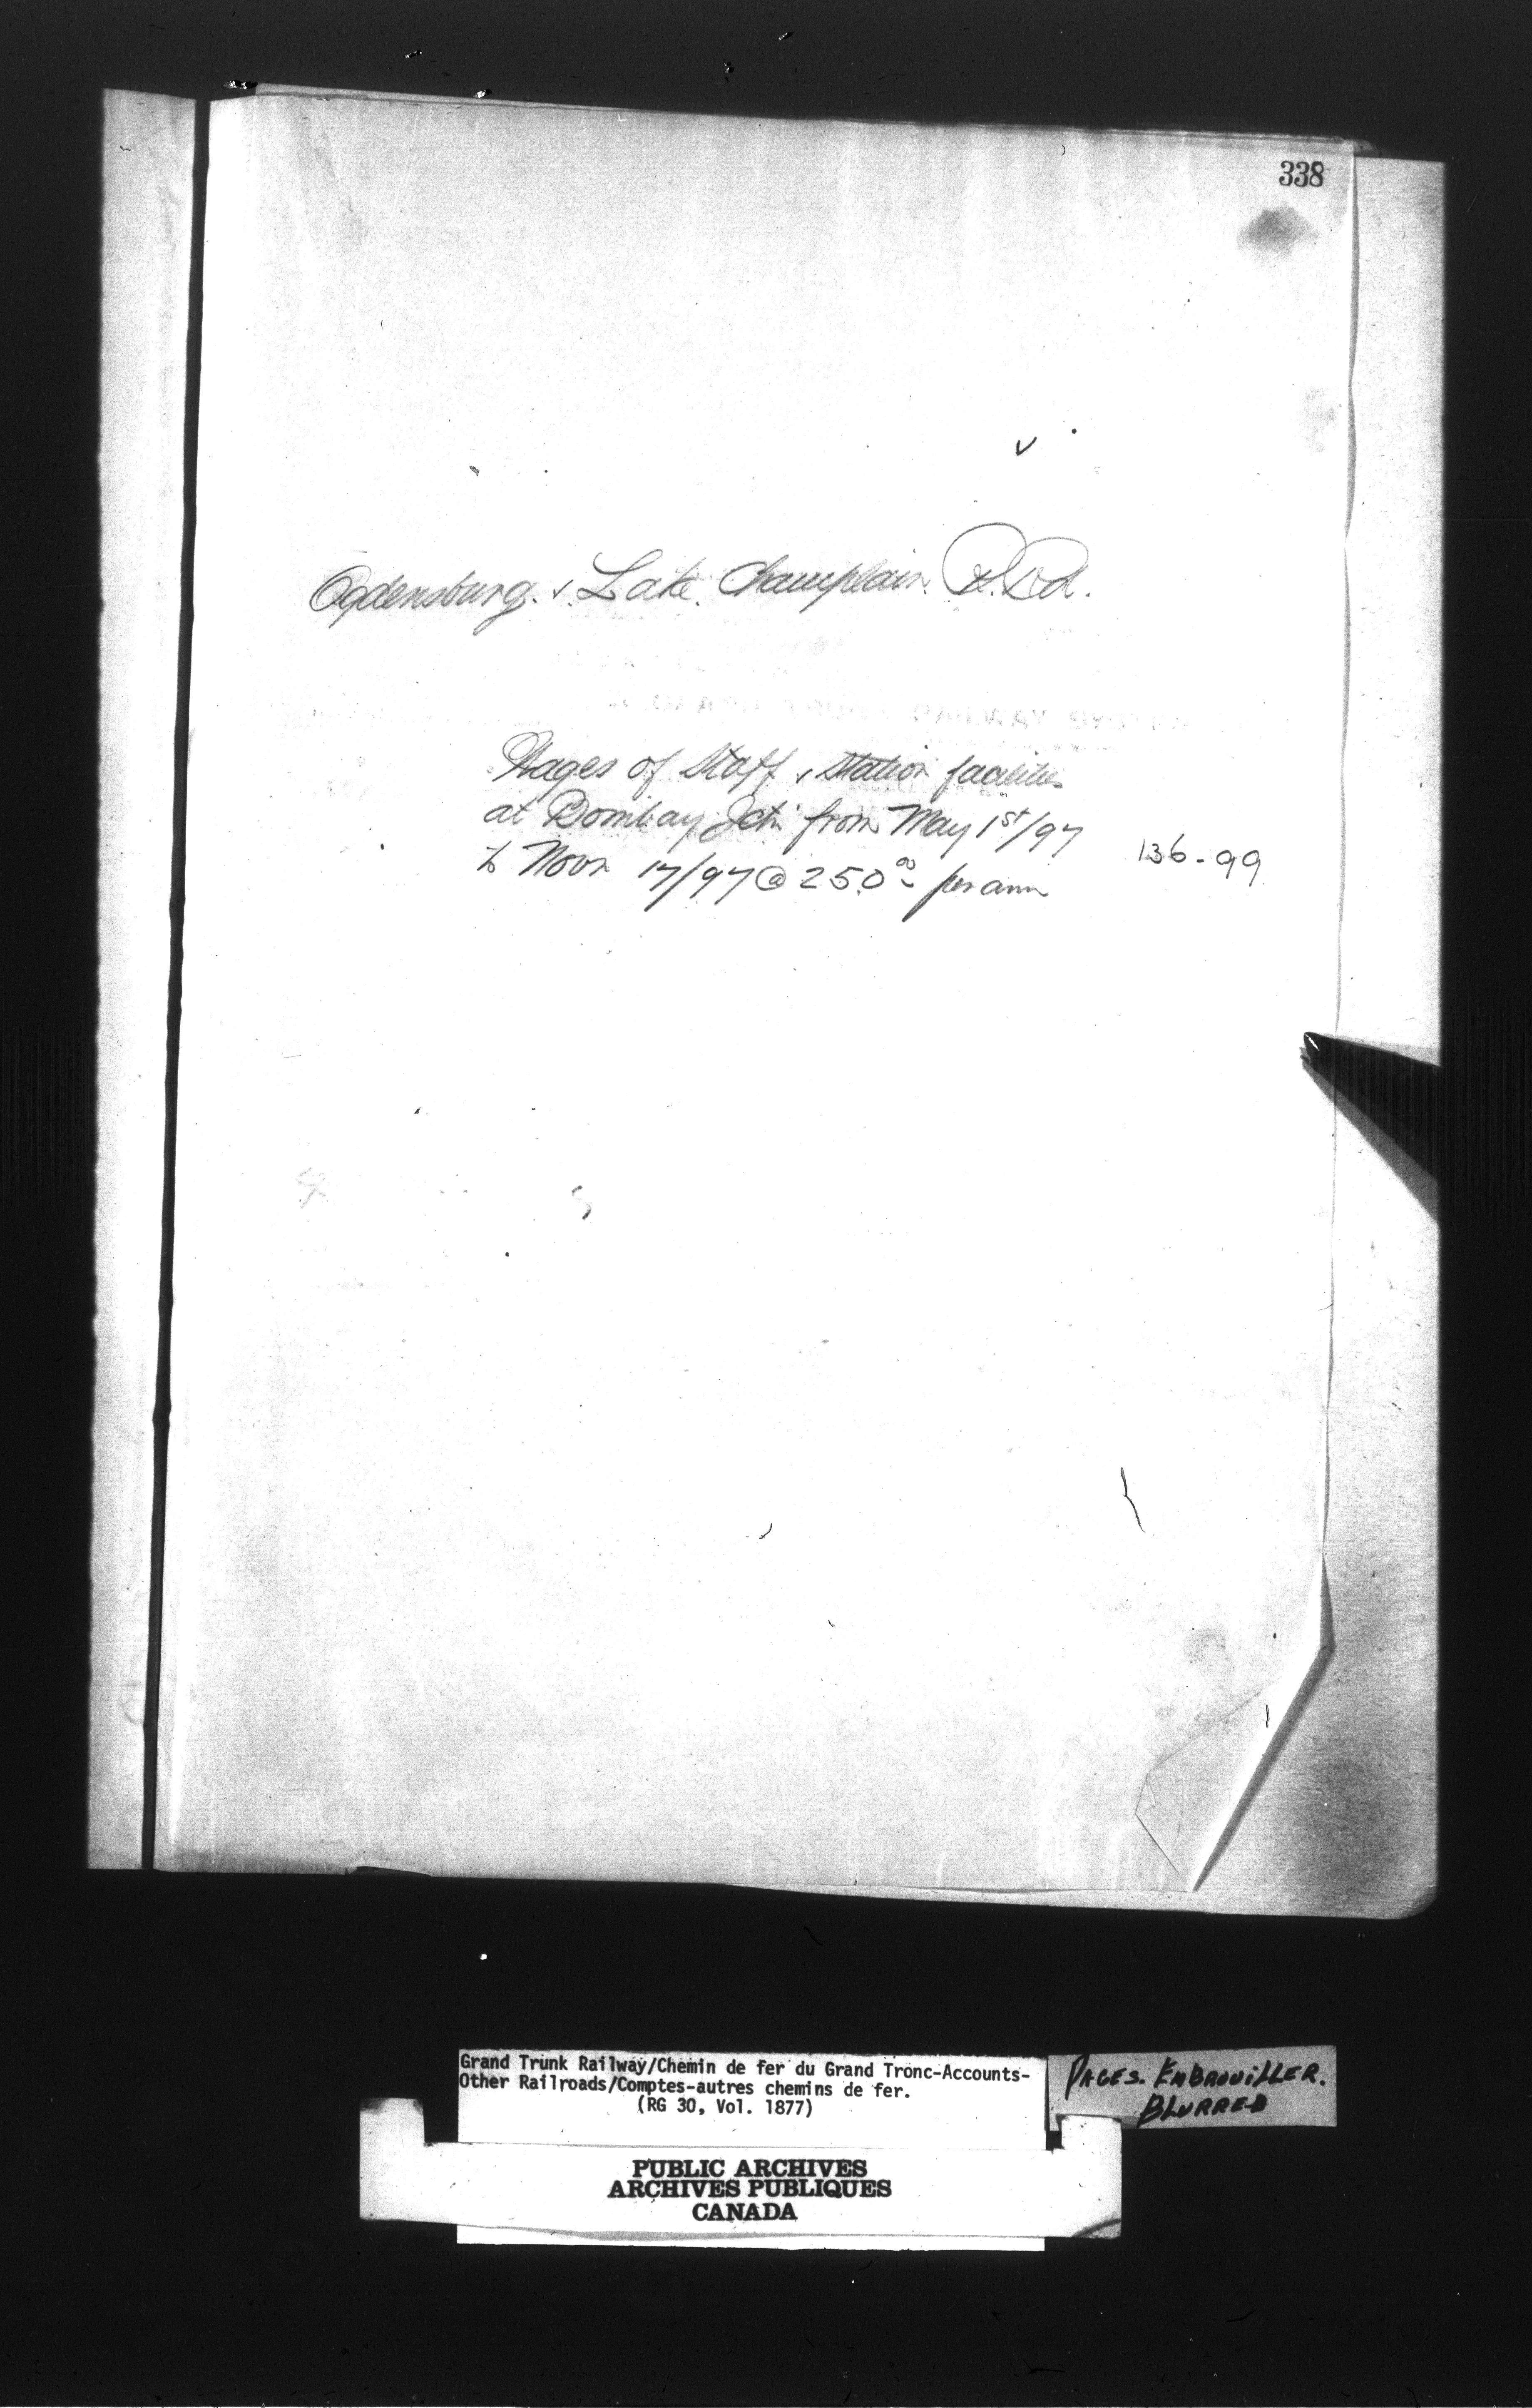 338
Ogdensburg. & Lake. Champlain. R.Rd.
Wages of Staff & Station facilities
at Bombay Jctn from May 1st/97
to Novr 17/97 @ 250.00 per ann
136-99
Grand Trunk Railway/Chemin de fer du Grand Tronc-Accounts-
Other Railroads/Comptes-autres chemins de fer.
(RG 30, Vol. 1877)
PAGES. EMBROUILLER.
BLURRED
PUBLIC ARCHIVES
ARCHIVES PUBLIQUES
CANADA